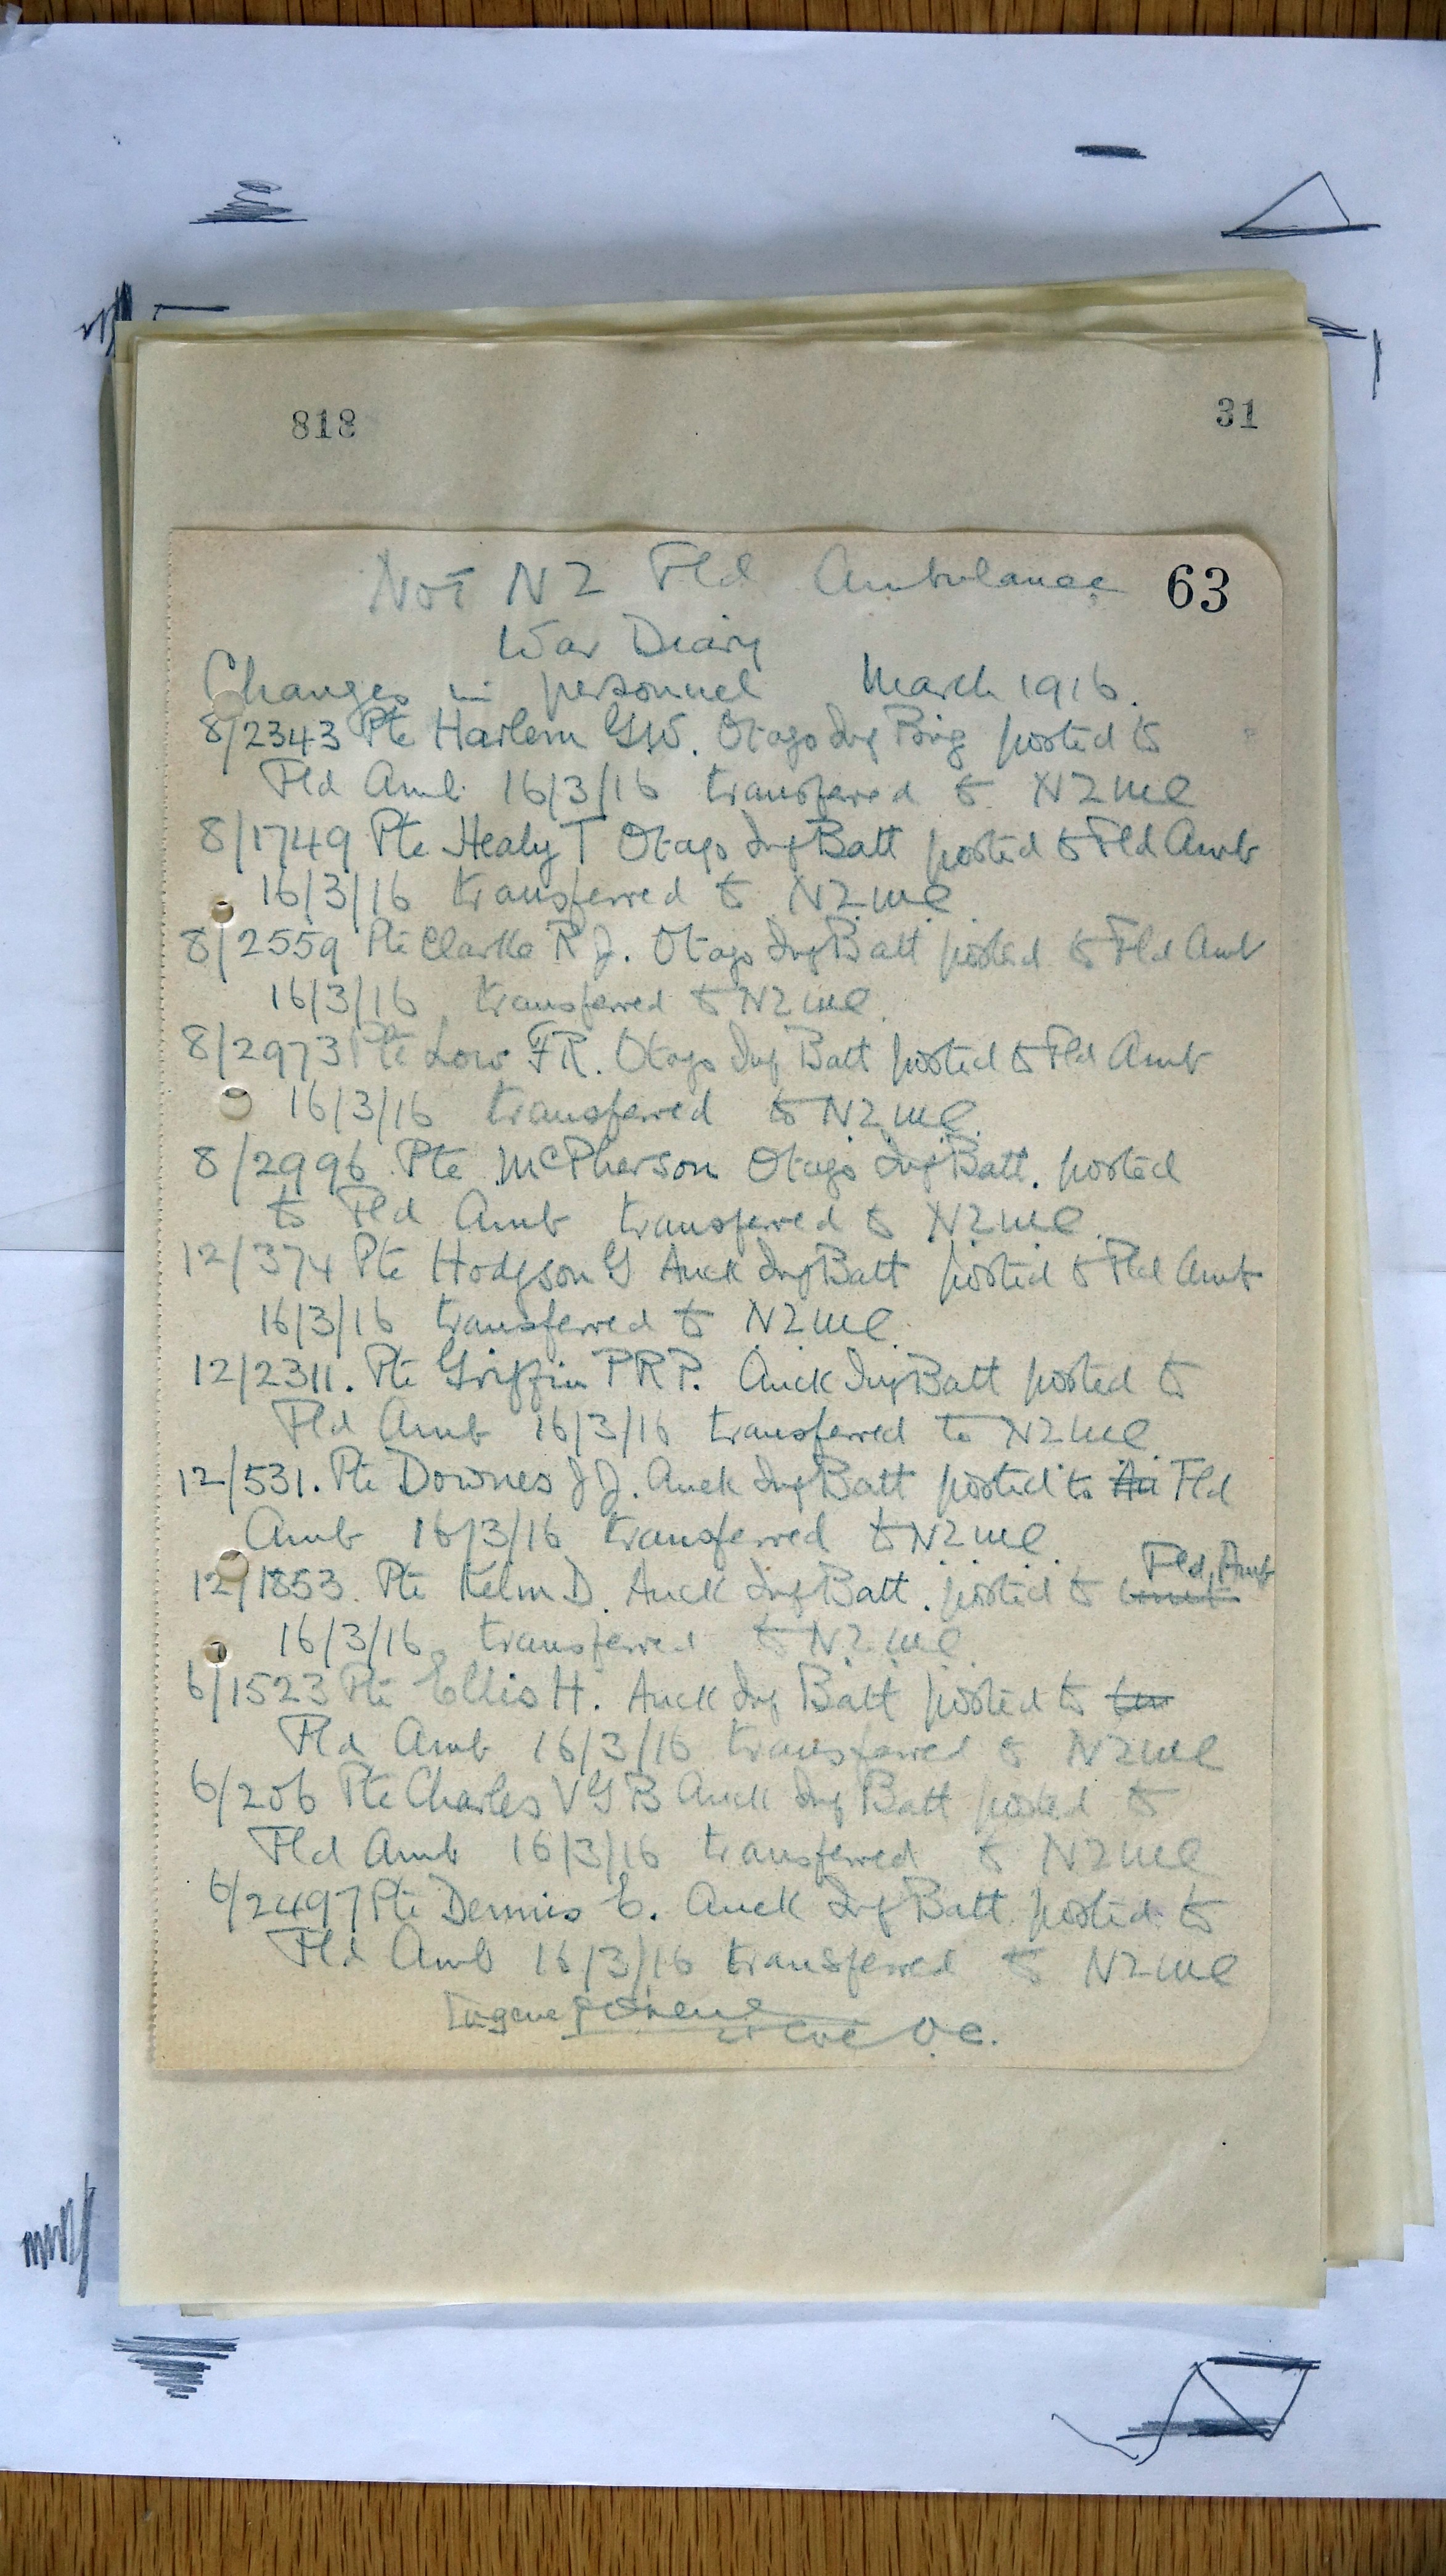 818 31
63
No 1 N Z Fld Ambulance
War Diary
Changes in personnel March 1916.
8/2343 Pte Harlem G W. Otago Inf Brig posted to
Fld Amb. 16/3/16 transferred to NZMC
8/1749 Pte Healy T Otago Inf Batt posted to Fld Amb
16/3/16 transferred to NZMC
8/2559 Pte Clarke R J. Otago Inf Batt posted to Fld Amb
16/3/16 transferred to NZMC.
8/2973 Pte Low F R. Otago Inf Batt posted to Fld Amb
16/3/16 transferred to NZMC.
8/2996 Pte McPherson Otago Inf Batt. posted
to Fld Amb transferred to NZMC.
12/374 Pte Hodgson G Auck Inf Batt posted to Fld Amb
16/3/16 transferred to NZMC.
12/2311. Pte Griffin P R P. Auck Inf Batt posted to
Fld Amb 16/3/16 transferred to NZMC.
12/531. Pte Downes J J. Auck Inf Batt posted to Fld
Amb 16/3/16 transferred to NZMC.
12/1853. Pte Kelm D. Auck Inf Batt. posted to Fld Amb
16/3/16 transferred to NZMC.
6/1523 Pte Ellis H. Auck Inf Batt posted to
Fld Amb 16/3/16 transferred to NZMC
6/206 Pte Charles V G B Auck Inf Batt posted to
Fld Amb 16/3/16 transferred to NZMC
6/2497 Pte Dennis E. Auck Inf Batt posted to
Fld Amb 16/3/16 transferred to NZMC
Eugene
Lt Col O.C.